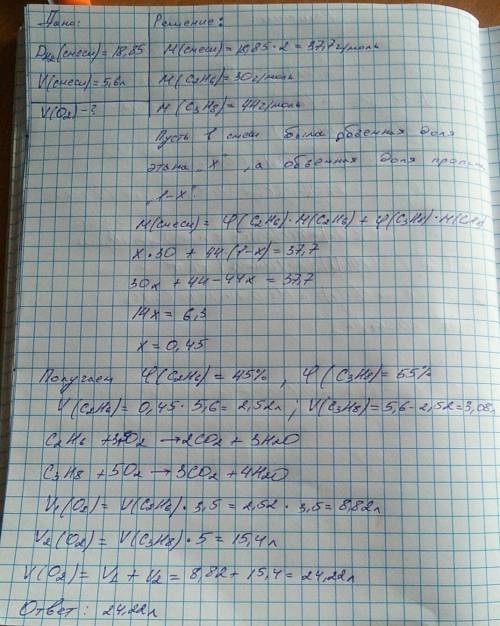 Дано: Решение:
D H2 (смеси) = 18,85 M(смеси) = 18,85 · 2 = 37,7 г/моль
V(смеси) = 5,6л M(C2H6) = 30 г/моль
V(O2) - ? M(C3H8) = 44 г/моль
Пусть в смеси была объемная доля
этана "x", а объемная доля пропана
"1-x".
M(смеси) = φ(C2H6) · M(C2H6) + φ(C3H8) · M(C3H8)
x · 30 + 44 · (1-x) = 37,7
30x + 44 - 44x = 37,7
14x = 6,3
x = 0,45
Получаем φ(C2H6) = 45%, φ(C3H8) = 55%
V(C2H6) = 0,45 · 5,6 = 2,52л; V(C3H8) = 5,6 - 2,52 = 3,08л
C2H6 + 3,5O2 → 2CO2 + 3H2O
C3H8 + 5O2 → 3CO2 + 4H2O
V1(O2) = V(C2H6) · 3,5 = 2,52 · 3,5 = 8,82л
V2(O2) = V(C3H8) · 5 = 15,4л
V(O2) = V1 + V2 = 8,82 + 15,4 = 24,22л
Ответ: 24,22л